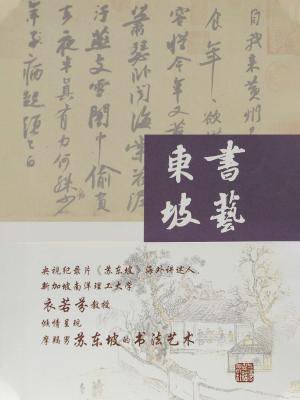 自我來黃州
食年〻欲惜
容惜今年又苦
蕭瑟卧聞海棠花泥
汙燕支雪闇中偷負
去夜半真有力何殊少
年子病起須已白
書藝
東坡
央视纪录片《苏东坡》海外讲述人
新加坡南洋理工大学
衣若芬教授
倾情呈现
摩羯男苏东坡的书法艺术